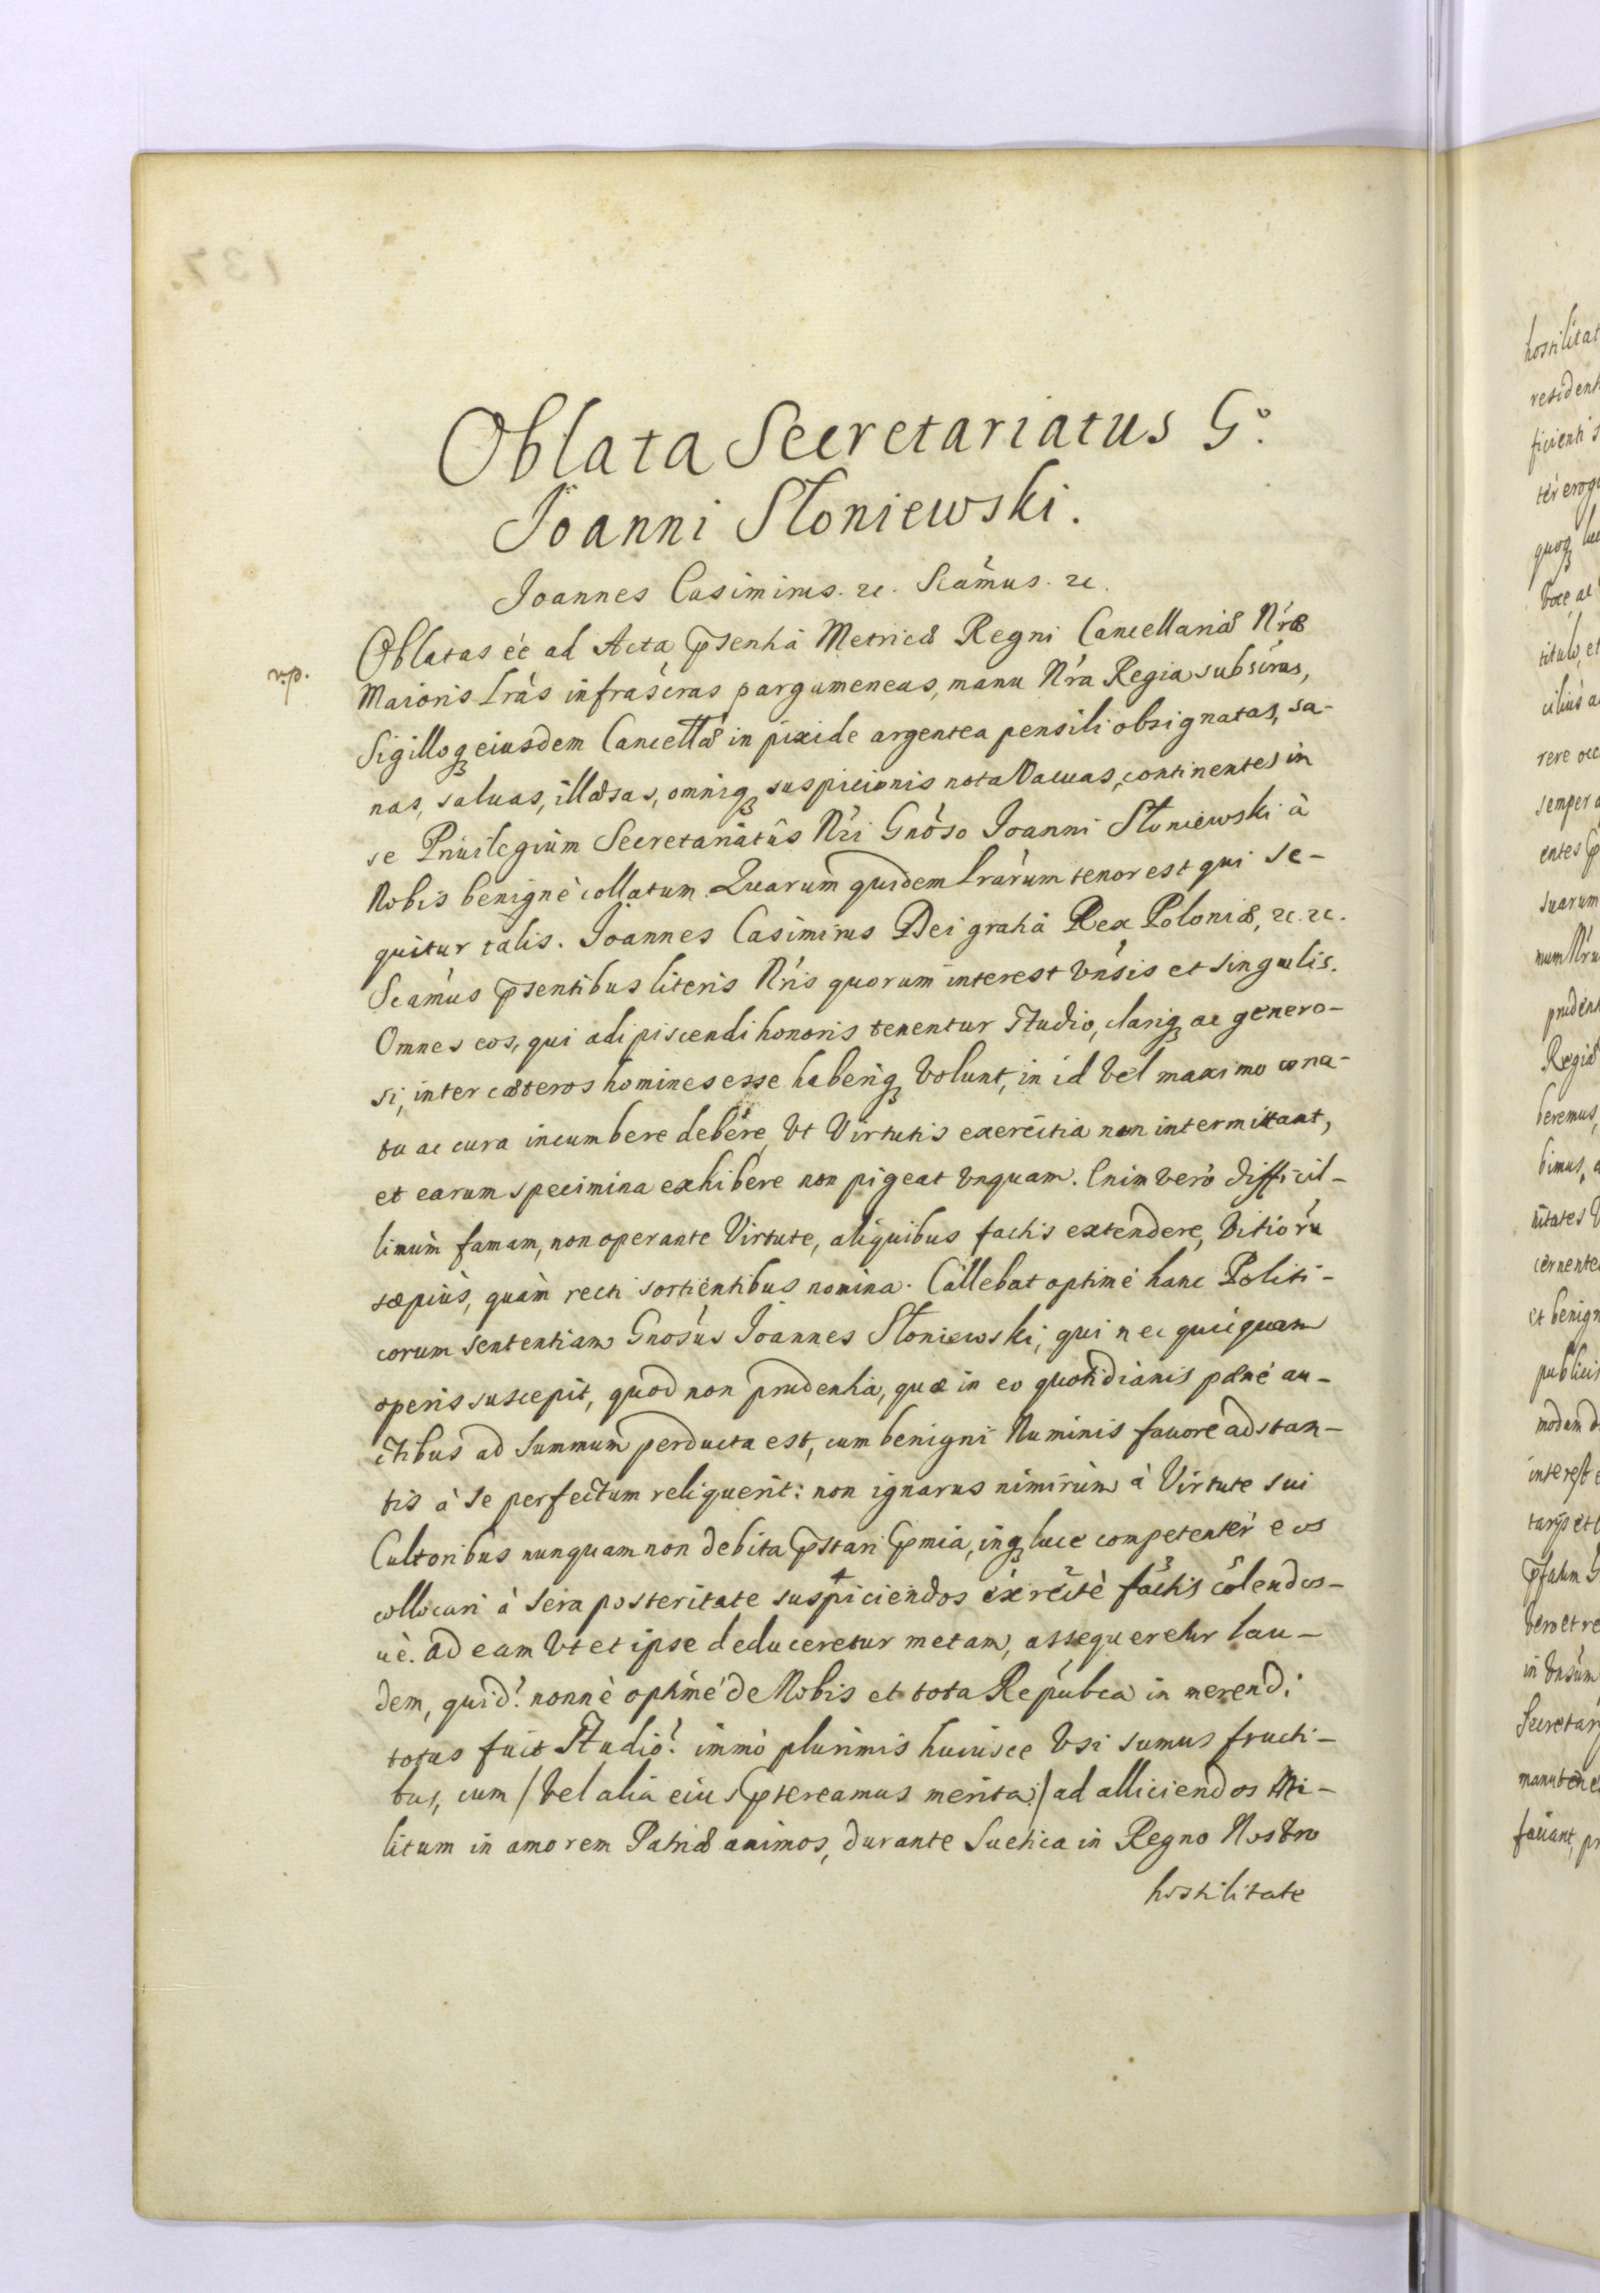 Oblata Secretariatus G.º
Joanni Słoniewski.
Joannes Casimirus. &c. Scámus. &c.
v.p.
Oblatas éé ad Acta p̄sentiá Metricæ Regni Cancellariæ Nræ
Maioris Lrás infrascras pargameneas, manu Nrá Regia subscras,
Sigilloq̃ eiusdem Cancellæ in pixide argentea pensili obsignatas, sa-
nas, saluas, illæsas, omniq̃ suspicionis nota Vacuas, continentes in
se Priuilegium Secretariatûs Nri Gnóso Joanni Słoniewski à
Nobis benignè collatum. Quarum quidem Lrárum tenor est qui se-
quitur talis. Joannes Casimirus Dei gratiâ Rex Poloniæ, &c. &c.
Scámus p̄sentibus literis Nris quorum interest Vnsis et singulis.
Omnes eos, qui adipiscendi honoris tenentur studio, clariq̃ ac genero-
si, inter cæteros homines esse haberiq̃ Volunt, in id Vel maximo cona-
tu ac cura incumbere debére, Vt Virtutis exercitia non intermittant,
et earum specimina exhibere non pigeat Vnquam. Enim verò difficil-
limùm famam, non operante Virtute, aliquibus factis extendere, Vitiorú
sæpiùs, quàm recti sortientibus nomina. Callebat optimé hanc Politi-
corum sententiam Gnosús Joannes Słoniewski, qui nec quicquam
operis suscepit, quod non prudentia, quæ in eo quotidianis pæné au-
ctibus ad summum perducta est, cum benigni Numinis fauore adstan-
tis à se perfectum reliquerit: non ignarus nimirùm à Virtute sui
Cultoribus nunquam non debita p̄stari p̄mia, inq̃ luce competentèr eos
collocari à sera posteritate suspiciendos éx récté factis colendos-
uè. ad eam Vt et ipse deduceretur metam, assequeretur lau-
dem, quid? nonnè optimé de Nobis et tota Repúbca in merendi
totus fuit studio? immò plurimis huiusce Vsi sumus fructi-
bus, cum /Vel alia eius p̄tereamus merita:/ ad alliciendos Mi-
litum in amorem Patriæ animos, durante Suetica in Regno Nostro
hostilitate